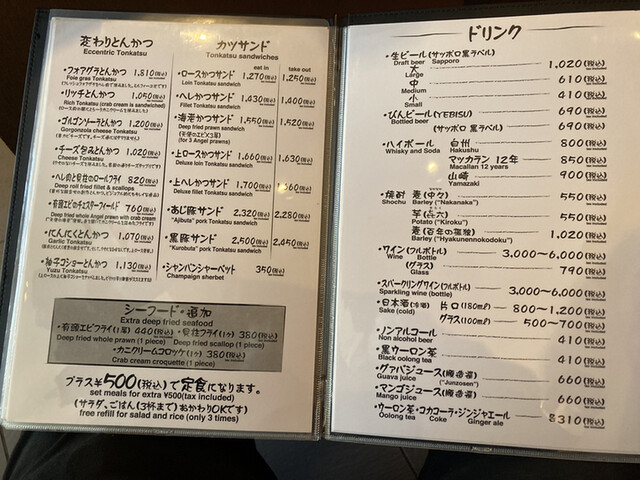 変わりとんかつ
Eccentric Tonkatsu
・フォアグラとんかつ 1,810(税込)
Foie gras Tonkatsu
・リッチとんかつ 1,050(税込)
Rich Tonkatsu (crab cream is sandwiched)
・ゴルゴンゾーラとんかつ 1,200(税込)
Gorgonzola cheese Tonkatsu
・チーズ包みとんかつ 1,020(税込)
Cheese Tonkatsu
・ヘレ肉と貝柱のロールフライ 820(税込)
Deep roll fried fillet & scallops
・有頭エビのチェスターフィールド 760(税込)
Deep fried whole Angel prawn with crab
・にんにくとんかつ 1,070(税込)
Garlic Tonkatsu
・柚子コショーとんかつ 1,130(税込)
Yuzu Tonkatsu
カツサンド
Tonkatsu sandwiches
eat in take out
・ロースかつサンド 1,270(税込) 1,250(税込)
Loin Tonkatsu sandwich
・ヘレかつサンド 1,430(税込) 1,400(税込)
Fillet Tonkatsu sandwich
・海老かつサンド 1,550(税込) 1,520(税込)
Deep fried prawn sandwich
(天使のエビ3尾)
(for 3 Angel prawns)
・上ロースかつサンド 1,660(税込) 1,630(税込)
Deluxe loin Tonkatsu sandwich
・上ヘレかつサンド 1,700(税込)
Deluxe fillet Tonkatsu sandwich
・あじ豚サンド 2,320(税込) 2,280(税込)
"Ajibuta" pork Tonkatsu sandwich
・黒豚サンド 2,500(税込) 2,450(税込)
"Kurobuta" pork Tonkatsu sandwich
・シャンパンシャーベット 350(税込)
Champaign sherbet
シーフード・追加
Extra deep fried seafood
・有頭エビフライ(1尾) 440(税込) ・貝柱フライ(1ケ) 380(税込)
Deep fried whole prawn (1 piece) Deep fried scallop (1 piece)
・カニクリームコロッケ(1ケ) 380(税込)
Crab cream croquette (1 piece)
プラス¥500(税込)で定食になります。
set meals for extra ¥500(tax included)
(サラダ、ごはん(3杯まで)おかわりOKです)
free refill for salad and rice (only 3 times)
ドリンク
・生ビール(サッポロ黒ラベル)
Draft beer Sapporo
大 1,020(税込)
Large
中 610(税込)
Medium
小 410(税込)
Small
・びんビール(YEBISU) 690(税込)
Bottled beer
(サッポロ黒ラベル) 690(税込)
・ハイボール 白州 800(税込)
Whisky and Soda Hakushu
マッカラン12年 850(税込)
Macallan 12 years
山崎 900(税込)
Yamazaki
・焼酎 麦(中々) 550(税込)
Shochu Barley ("Nakanaka")
芋(㐂六) 550(税込)
Potato ("Kiroku")
麦(百年の孤独) 1,020(税込)
Barley ("Hyakunennokodoku")
・ワイン(フルボトル) 3,000〜6,000(税込)
Wine Bottle
(グラス) 790(税込)
Glass
・スパークリングワイン(フルボトル) 3,000〜6,000(税込)
Sparkling wine (bottle)
・日本酒(冷酒) 片口(180㎖) 800〜1,200(税込)
Sake (cold) グラス(100㎖) 500〜700(税込)
・ノンアルコール 410(税込)
Non alcohol beer
・黒ウーロン茶 410(税込)
Black oolong tea
・グァバジュース(順造選) 660(税込)
Guava juice "Junzosen"
・マンゴジュース(順造選) 660(税込)
Mango juice
・ウーロン茶・コカコーラ・ジンジャエール 各310(税込)
Oolong tea Coke Ginger ale